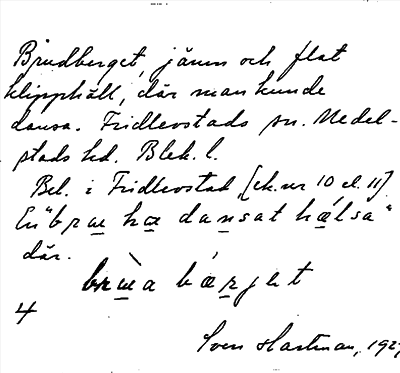 Brudberget, jämn och flat
klipphäll, där man kunde
dansa. Fridlevstads sn. Medel-
stads hd. Blek. l.
Bel. i Fridlevstad [ek. nr 10 el. 11].
En "brɯ hɑ dansat hælsa"
där.
brɯ̀a bærjet
4
Sven Hartman, 192